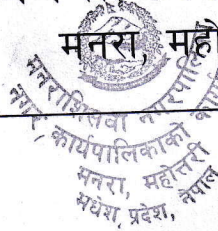 मनरा, महो
मनराशिसवा नगरपालिका
नगर कार्यपालिकाको कार्या
मनरा, महोत्तरी
मधेश प्रदेश, नेपाल